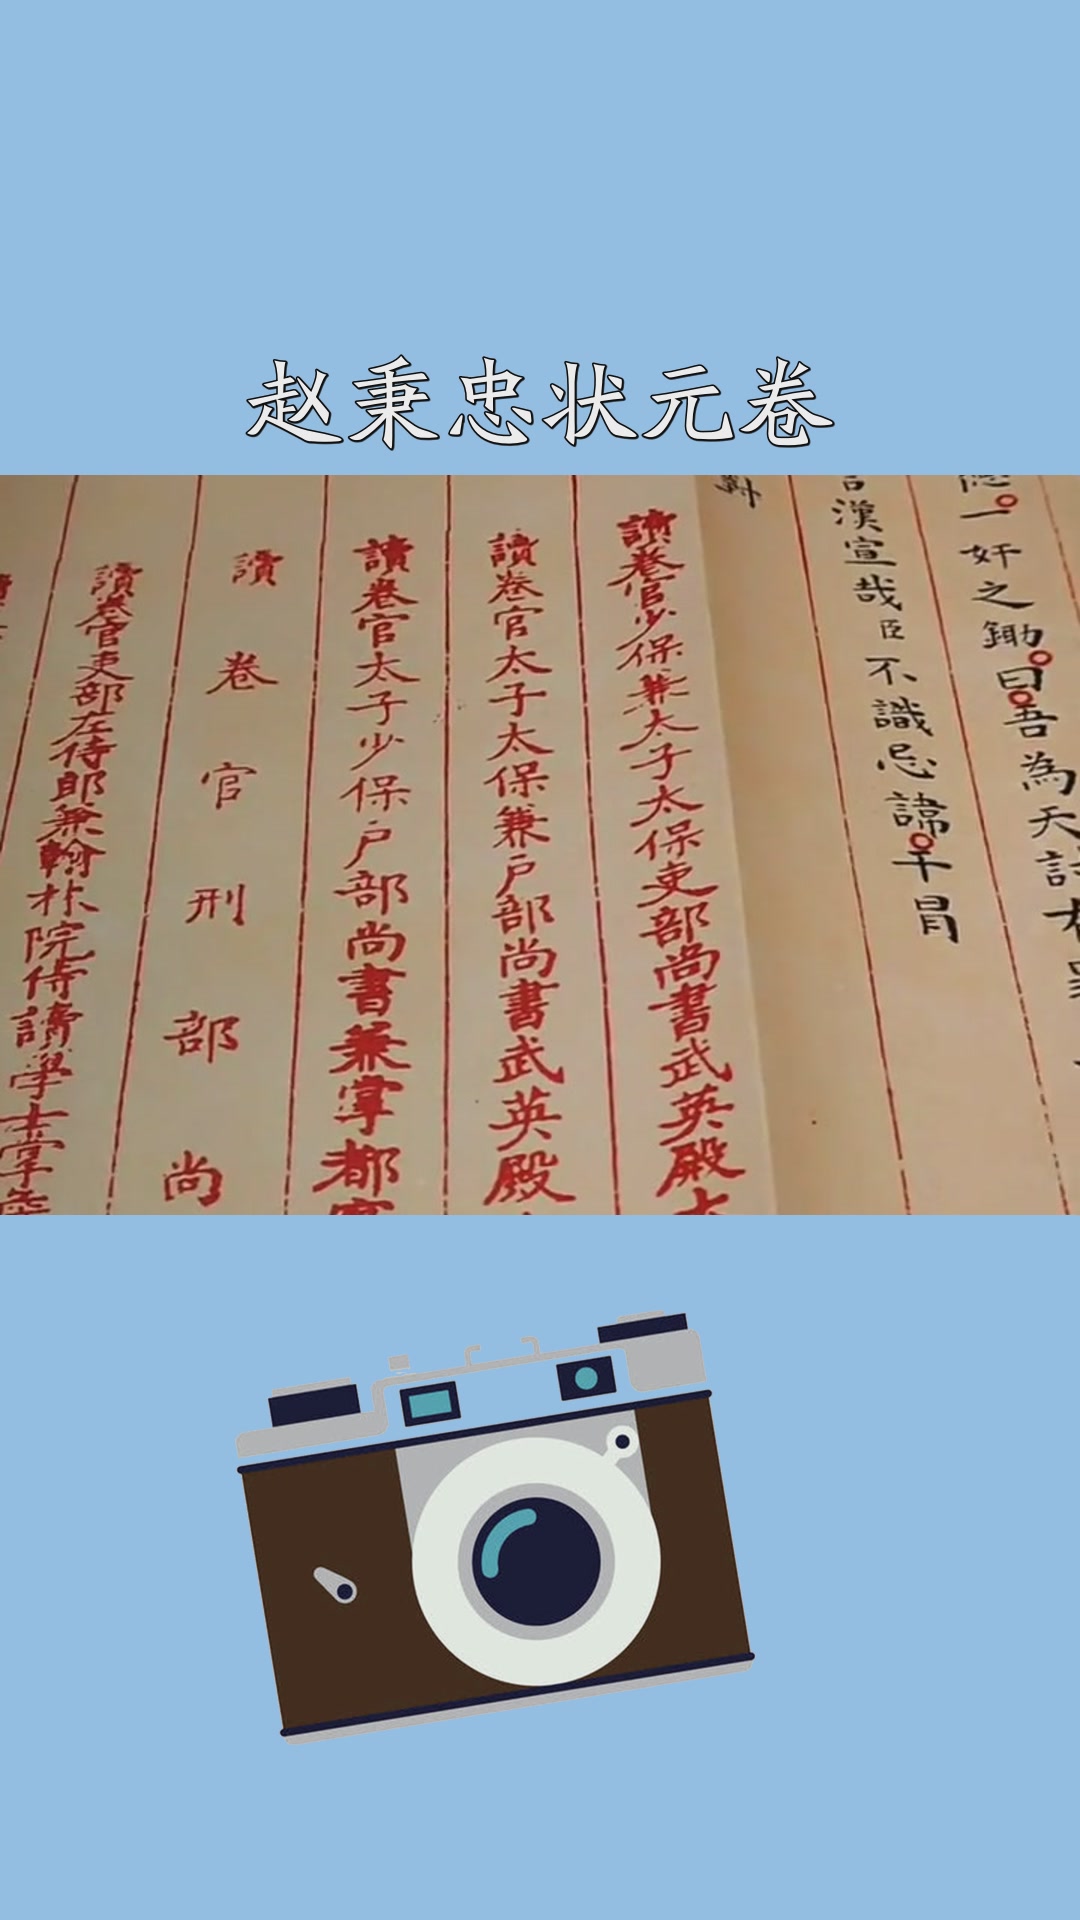 赵秉忠状元卷
一奸之鋤曰吾為天討有罪
漢宣哉臣不識忌諱干冐
讀卷官少保兼太子太保吏部尚書武英殿
讀卷官太子太保兼户部尚書武英殿
讀卷官太子少保户部尚書兼掌都察
讀卷官刑部尚
讀卷官吏部左侍郎兼翰林院侍讀學士掌